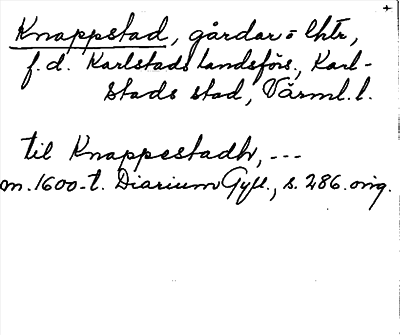 +
Knappstad, gårdar o lhtr,
f.d. Karlstads landsförs., Karl-
stads stad, Värml.l.
til Knappestadh, ---
m.1600-t. Diarium Gyll., s. 286. orig.